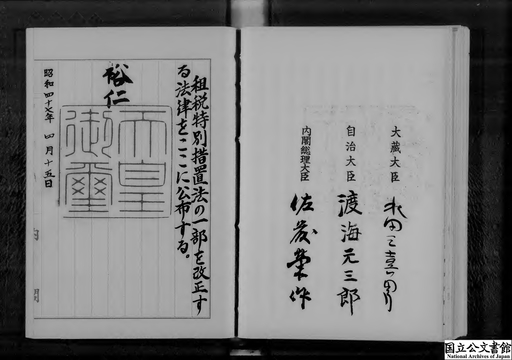 租税特別措置法の一部を改正す
る法律をここに公布する。
裕仁
天皇
御璽
昭和四十七年 四月十五日
大蔵大臣 水田三喜男
自治大臣 渡海元三郎
内閣総理大臣 佐藤榮作
国立公文書館
National Archives of Japan